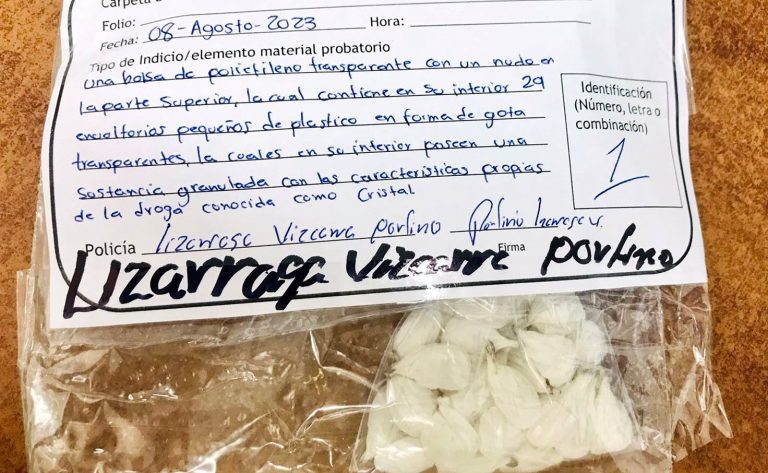 Carpeta
Folio:
Fecha: 08-Agosto-2023 Hora:
Tipo de Indicio/elemento material probatorio
una bolsa de polietileno transparente con un nudo en
la parte superior, la cual contiene en su interior 29
envoltorios pequeños de plastico en forma de gota
transparentes, la cuales en su interior poseen una
sostancia granulada con las caracteristicas propias
de la droga conocida como Cristal
Identificación
(Número, letra o
combinación)
1
Policía Lizarraga Vizcarra porfino
Firma
Lizarraga Vizcarra porfino